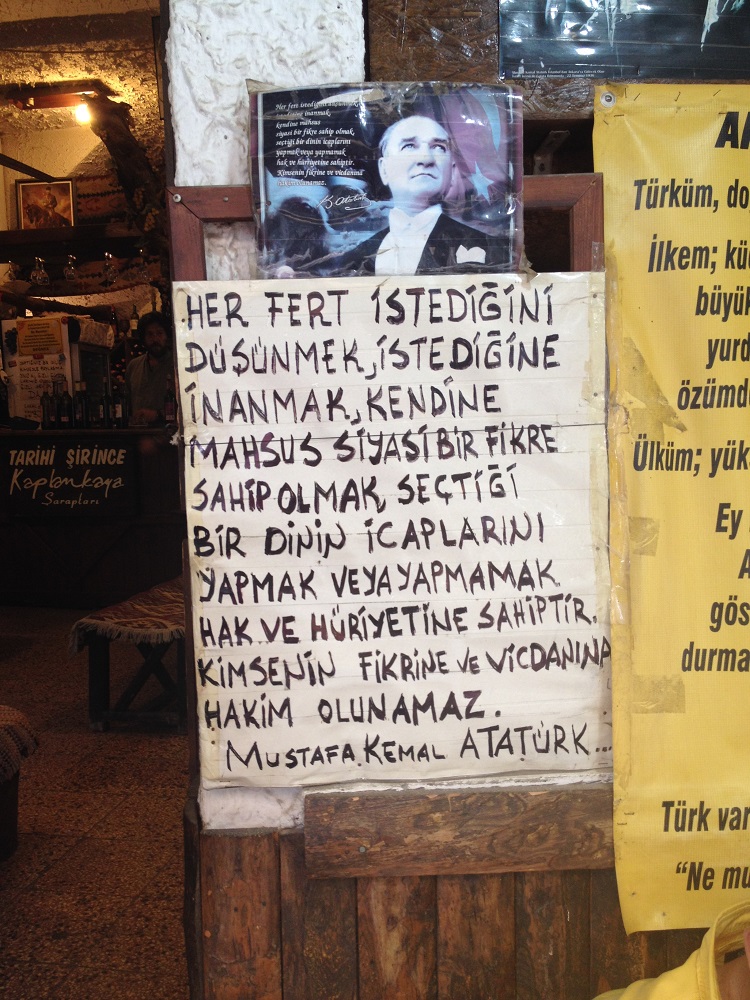 Her fert istediğini düşünmek,
istediğine inanmak,
kendine mahsus
siyasi bir fikre sahip olmak,
seçtiği bir dinin icaplarını
yapmak veya yapmamak
hak ve hürriyetine sahiptir.
Kimsenin fikrine ve vicdanına
hakim olunamaz.
HER FERT İSTEDİĞİNİ
DÜŞÜNMEK, İSTEDİĞİNE
İNANMAK, KENDİNE
MAHSUS SİYASİ BİR FİKRE
SAHİP OLMAK, SEÇTİĞİ
BİR DİNİN İCAPLARINI
YAPMAK VEYA YAPMAMAK
HAK VE HÜRİYETİNE SAHİPTİR.
KİMSENİN FİKRİNE VE VİCDANINA
HAKİM OLUNAMAZ.
MUSTAFA KEMAL ATATÜRK...
TARİHİ ŞİRİNCE
Kaplankaya
Şarapları
Türküm, do
İlkem; kü
büyük
yurd
özümde
Ülküm; yük
Ey
A
gös
durma
Türk var
"Ne mu